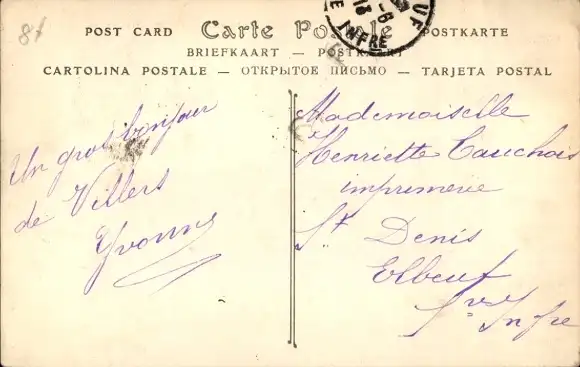 POST CARD Carte Postale POSTKARTE
BRIEFKAART — POSTKAART
CARTOLINA POSTALE — ОТКРЫТОЕ ПИСЬМО — TARJETA POSTAL
Un gros bonjour
de Villers
Yvonne
Mademoiselle
Henriette Cauchois
imprimerie
St Denis
Elbeuf
Sne Infre
INFRE